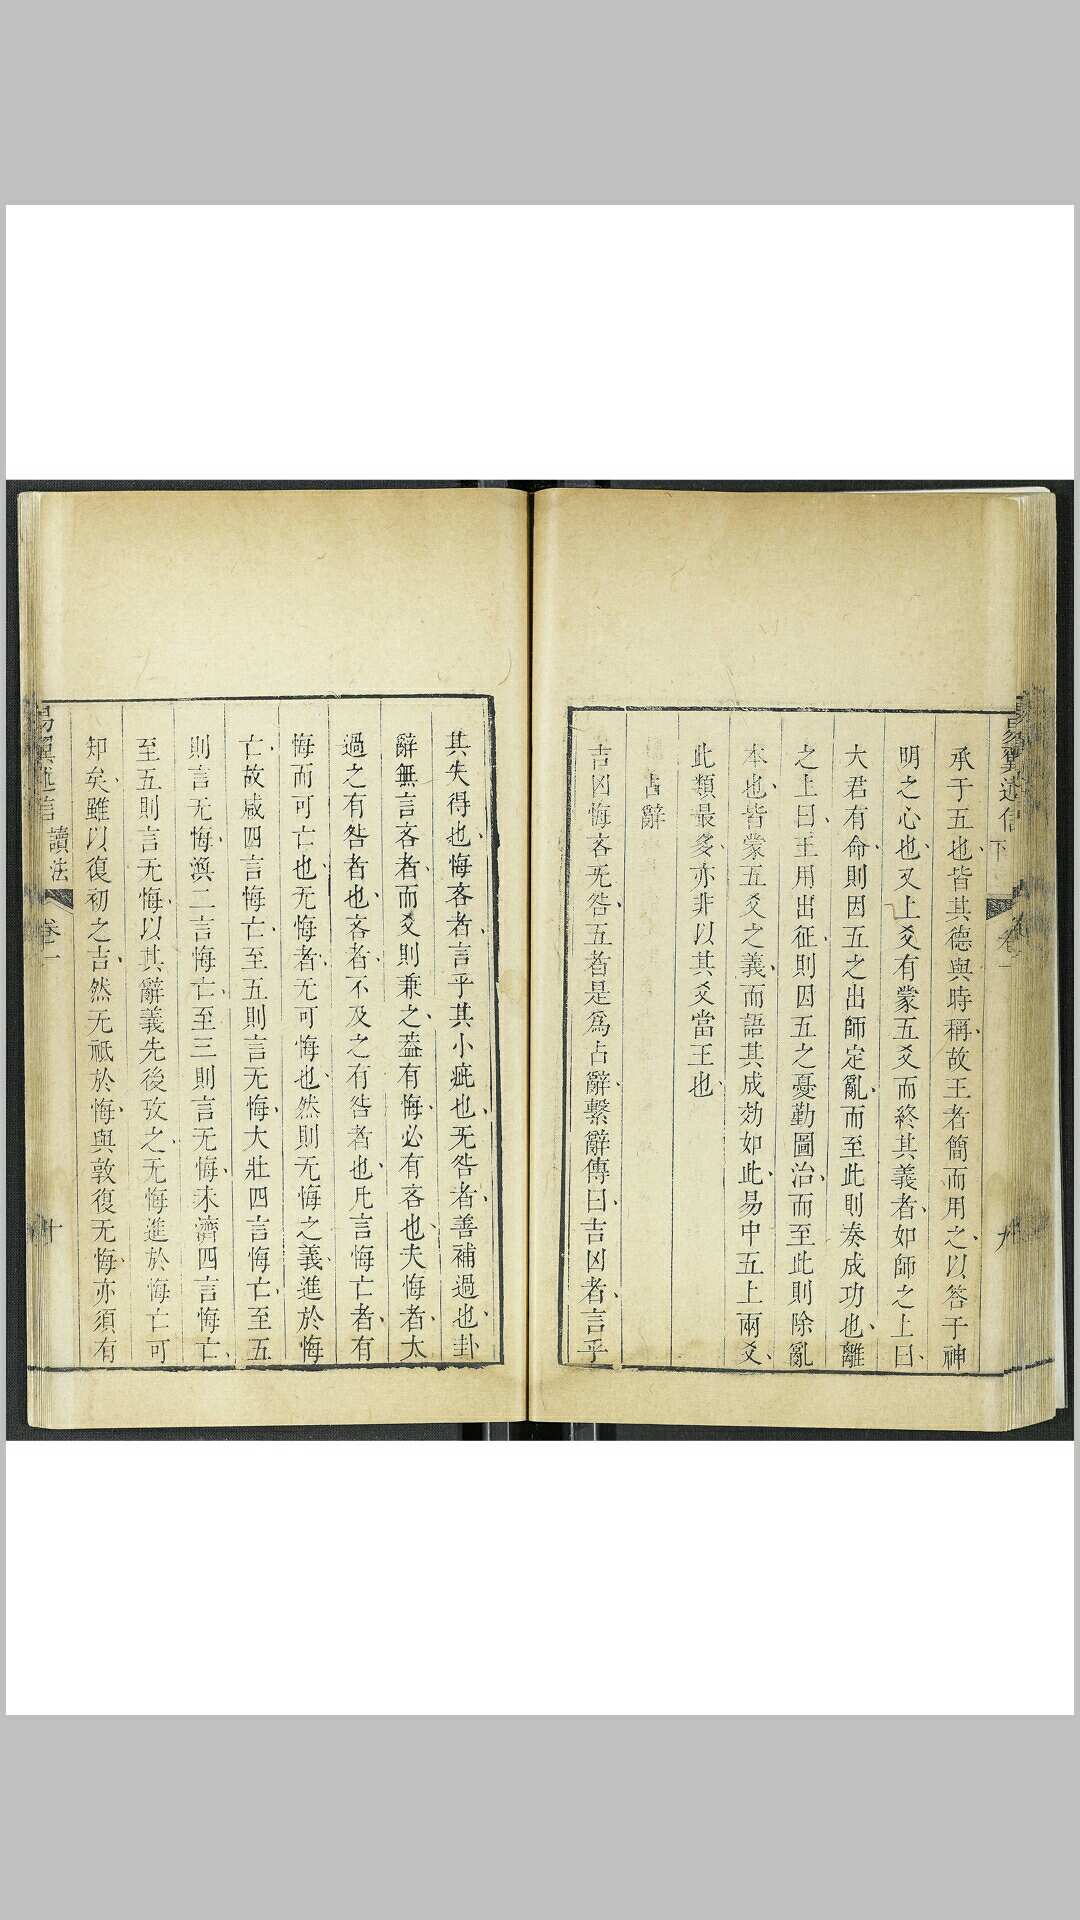 易翼述信
下
卷一
九
承于五也皆其德與時稱故王者簡而用之以答于神
明之心也又上爻有蒙五爻而終其義者如師之上曰
大君有命則因五之出師定亂而至此則奏成功也離
之上曰王用出征則因五之憂勤圖治而至此則除亂
本也皆蒙五爻之義而語其成効如此易中五上兩爻
此類最多亦非以其爻當王也
占辭
吉凶悔吝无咎五者是爲占辭繫辭傳曰吉凶者言乎
其失得也悔吝者言乎其小疵也无咎者善補過也卦
辭無言吝者而爻則兼之蓋有悔必有吝也夫悔者太
過之有咎者也吝者不及之有咎者也凡言悔亡者有
悔而可亡也无悔者无可悔也然則无悔之義進於悔
亡故咸四言悔亡至五則言无悔大壯四言悔亡至五
則言无悔渙二言悔亡至三則言无悔未濟四言悔亡
至五則言无悔以其辭義先後攷之无悔進於悔亡可
知矣雖以復初之吉然无祇於悔與敦復无悔亦須有
易翼述信
讀法
卷一
十